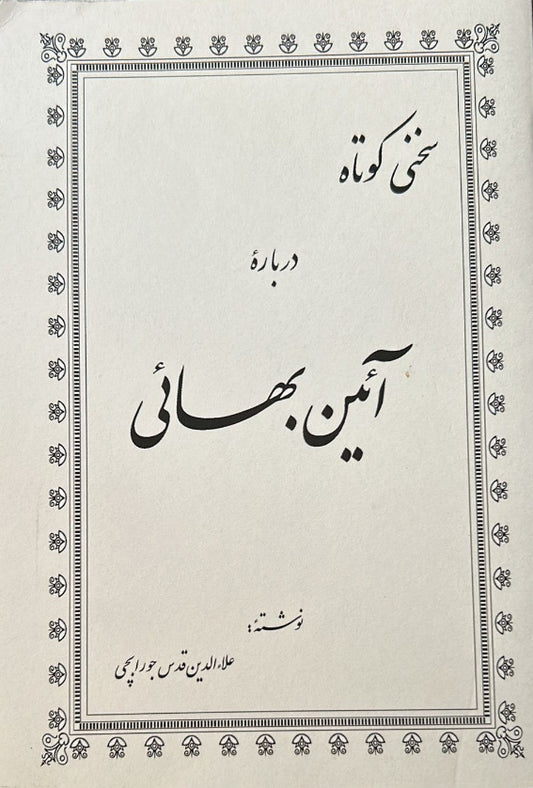 سخنی کوتاه
دربارهٔ
آئین بهائی
نوشتهٔ:
علاءالدین قدس جورابچی